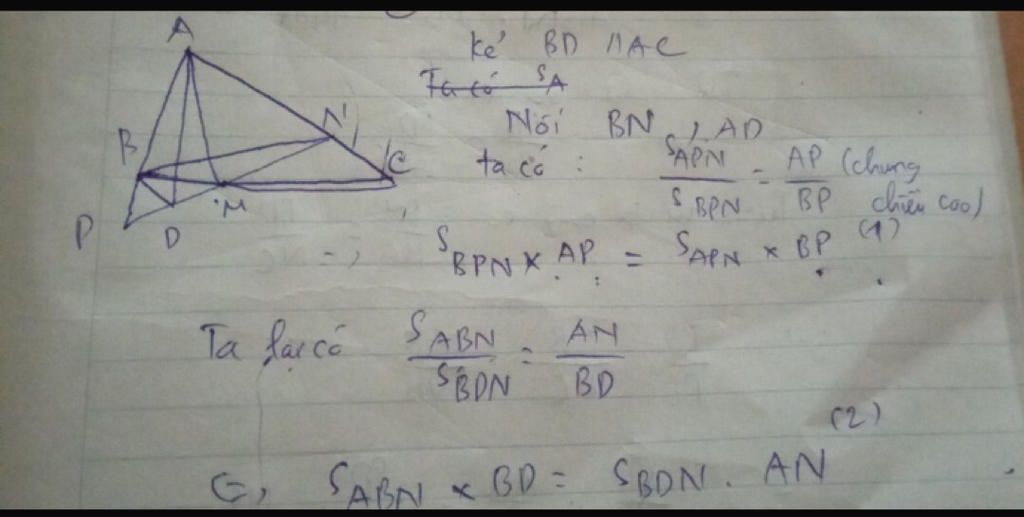 A
B
N
C
M
P
D
Kẻ BD // AC
Ta có S A
Nối BN, AD
ta có : S APN / S BPN = AP / BP (chung chiều cao)
=> S BPN × AP = S APN × BP (1)
Ta lại có S ABN / S BDN = AN / BD
(2)
<=> S ABN × BD = S BDN . AN